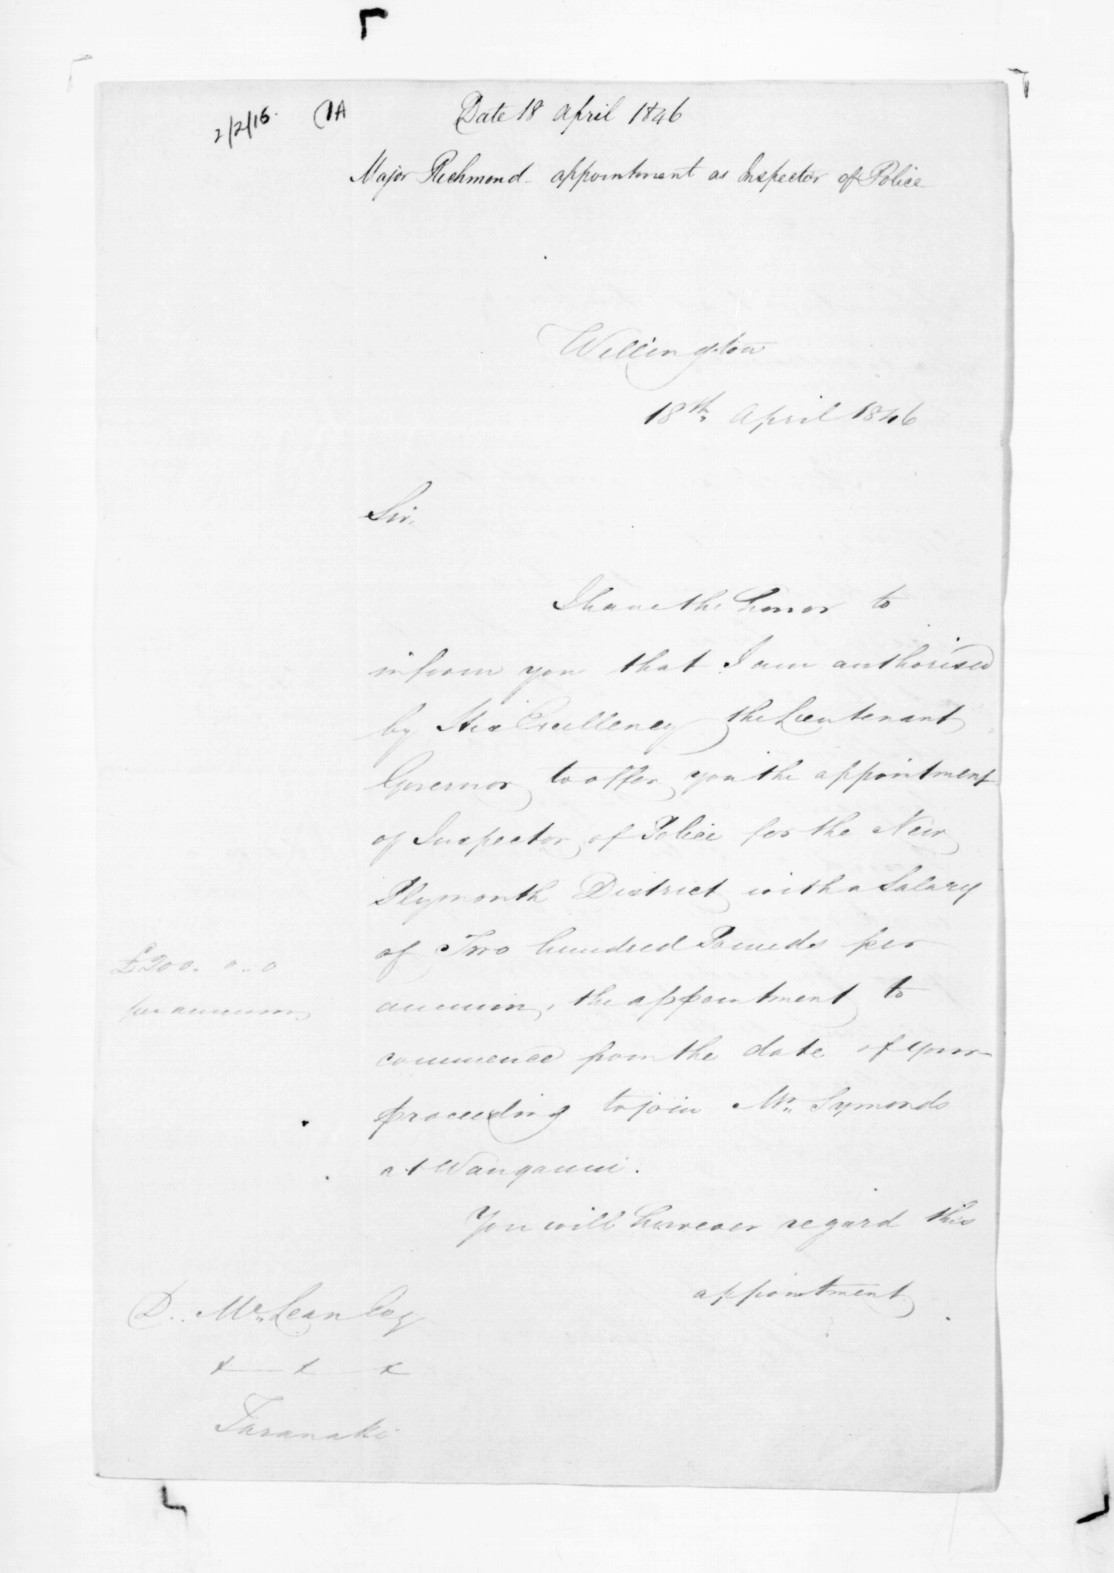 2/2/15. (1A
Date 18 April 1846
Major Richmond - appointment as Inspector of Police
Wellington
18th. April 1846
Sir,
I have the honor to
inform you that I am authorised
by His Excellency the Lieutenant
Governor to offer you the appointment
of Inspector of Police for the New
Plymouth District with a Salary
of Two hundred Pounds per
annum, the appointment to
commence from the date of your
proceeding to join Mr. Symonds
at Wanganui.
£200. 0. 0
per annum
You will however regard this
appointment
D. McLean Esq
x x x
Taranaki